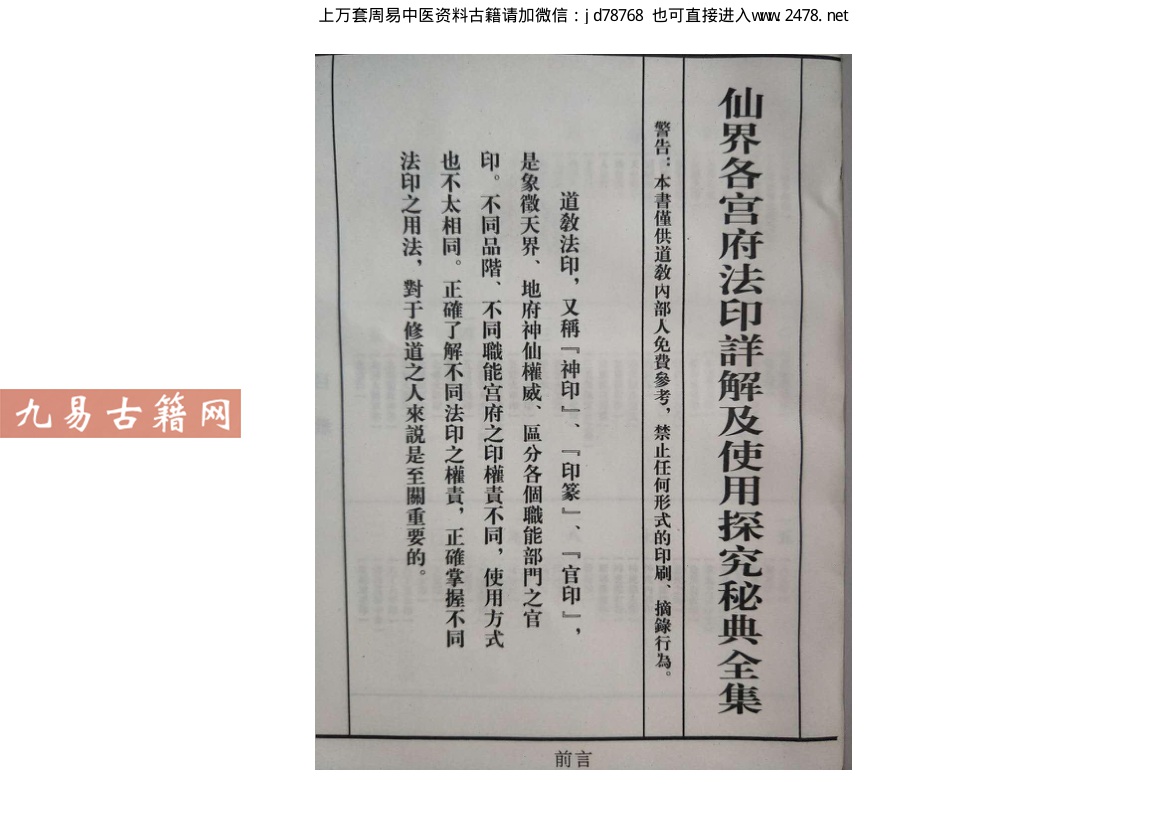 上万套周易中医资料古籍请加微信：jd78768 也可直接进入www.2478.net
仙界各宫府法印詳解及使用探究秘典全集
警告：本書僅供道教內部人免費參考，禁止任何形式的印刷、摘錄行為。
道教法印，又稱『神印』、『印篆』、『官印』，
是象徵天界、地府神仙權威、區分各個職能部門之官
印。不同品階、不同職能宫府之印權責不同，使用方式
也不太相同。正確了解不同法印之權責，正確掌握不同
法印之用法，對于修道之人來説是至關重要的。
前言
九易古籍网